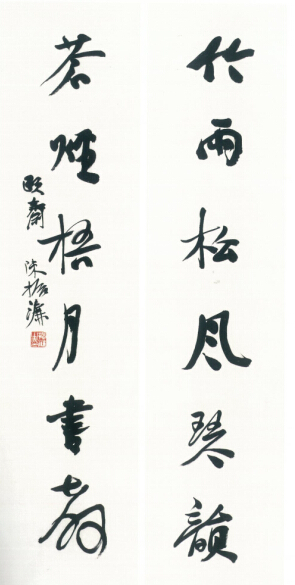 竹雨松風琴韻
茶煙梧月書聲
頤齋 陳振濂